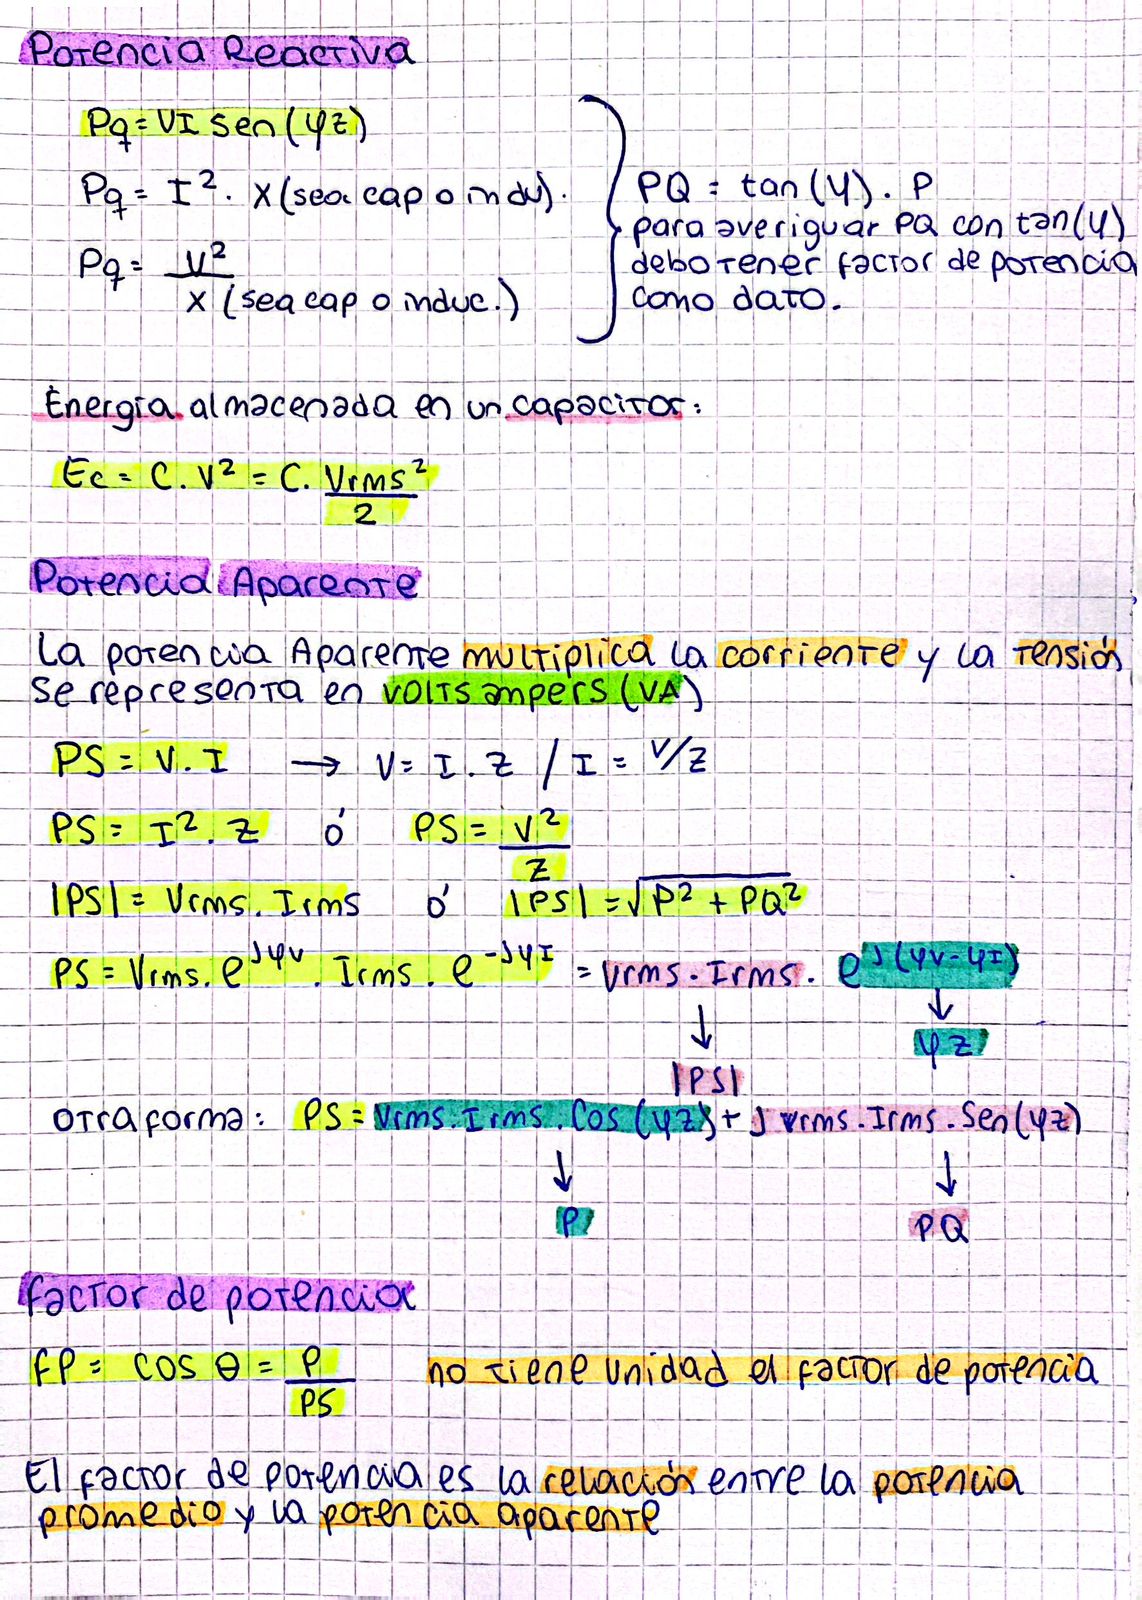 Potencia Reactiva
Pq = VI sen(φz)
Pq = I². X (sea cap o indu).
Pq = V² / X (sea cap o induc.)
PQ = tan(φ). P
para averiguar PQ con tan(φ)
debo tener factor de potencia
como dato.
Energía almacenada en un capacitor:
Ec = C. V² = C. Vrms² / 2
Potencia Aparente
La potencia Aparente multiplica la corriente y la tensión
se representa en volts ampers (VA)
PS = V. I → V = I. Z / I = V/Z
PS = I². Z ó PS = V² / Z
|PS| = Vrms. Irms ó |PS| = √P² + PQ²
PS = Vrms. e^jφv. Irms. e^-jφI = Vrms. Irms. e^j(φv-φI)
↓ ↓
|PS| φz
otra forma: PS = Vrms. Irms. Cos (φz) + j Vrms. Irms. Sen(φz)
↓ ↓
P PQ
factor de potencia
FP = cos θ = P / PS no tiene unidad el factor de potencia
El factor de potencia es la relación entre la potencia
promedio y la potencia aparente